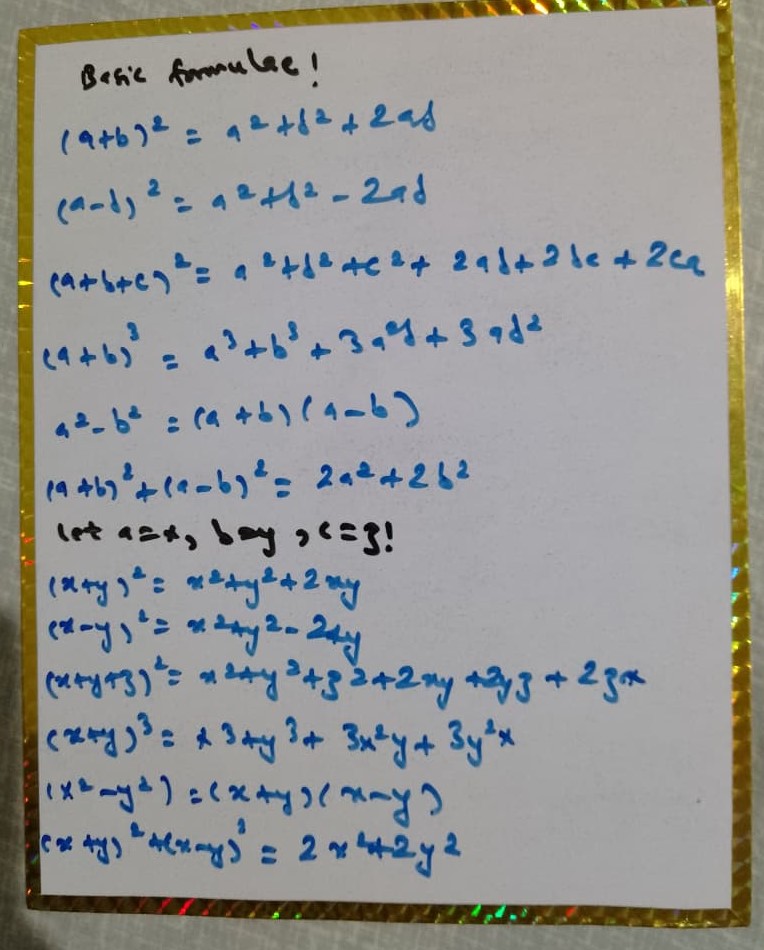 Basic formulae!
(a+b)² = a²+b²+2ab
(a-b)² = a²+b²-2ab
(a+b+c)² = a²+b²+c²+2ab+2bc+2ca
(a+b)³ = a³+b³+3a²b+3ab²
a²-b² = (a+b)(a-b)
(a+b)²+(a-b)² = 2a²+2b²
let a=x, b=y, c=z!
(x+y)² = x²+y²+2xy
(x-y)² = x²+y²-2xy
(x+y+z)² = x²+y²+z²+2xy+2yz+2zx
(x+y)³ = x³+y³+3x²y+3y²x
(x²-y²) = (x+y)(x-y)
(x+y)²+(x-y)³ = 2x²+2y²